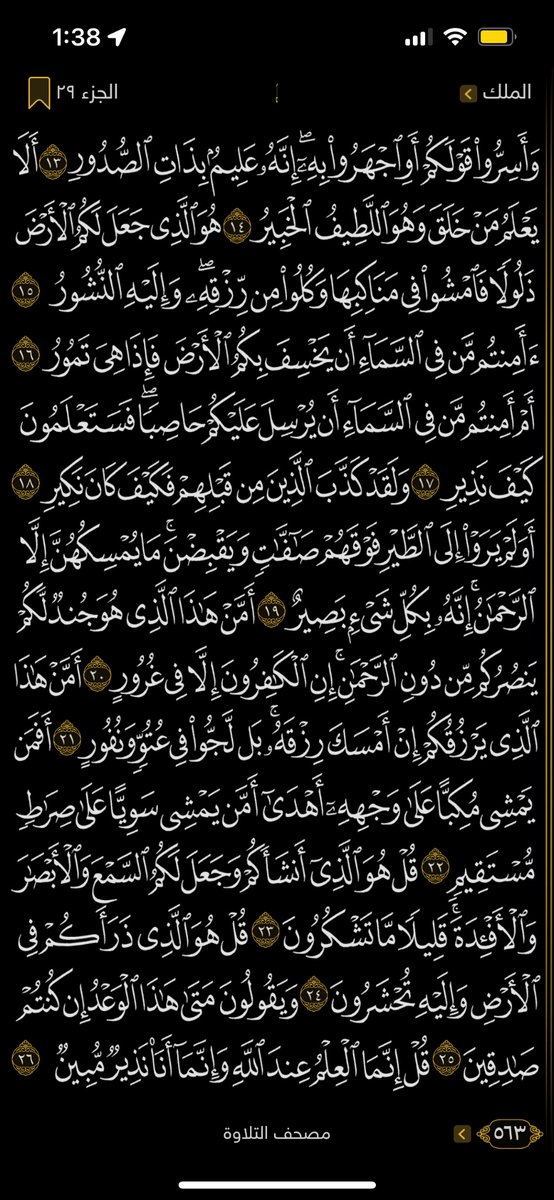 1:38
الملك
الجزء ٢٩
وَأَسِرُّوا۟ قَوْلَكُمْ أَوِ ٱجْهَرُوا۟ بِهِۦٓ ۖ إِنَّهُۥ عَلِيمٌۢ بِذَاتِ ٱلصُّدُورِ ١٣ أَلَا
يَعْلَمُ مَنْ خَلَقَ وَهُوَ ٱللَّطِيفُ ٱلْخَبِيرُ ١٤ هُوَ ٱلَّذِى جَعَلَ لَكُمُ ٱلْأَرْضَ
ذَلُولًا فَٱمْشُوا۟ فِى مَنَاكِبِهَا وَكُلُوا۟ مِن رِّزْقِهِۦ ۖ وَإِلَيْهِ ٱلنُّشُورُ ١٥
ءَأَمِنتُم مَّن فِى ٱلسَّمَآءِ أَن يَخْسِفَ بِكُمُ ٱلْأَرْضَ فَإِذَا هِىَ تَمُورُ ١٦
أَمْ أَمِنتُم مَّن فِى ٱلسَّمَآءِ أَن يُرْسِلَ عَلَيْكُمْ حَاصِبًا ۖ فَسَتَعْلَمُونَ
كَيْفَ نَذِيرِ ١٧ وَلَقَدْ كَذَّبَ ٱلَّذِينَ مِن قَبْلِهِمْ فَكَيْفَ كَانَ نَكِيرِ ١٨
أَوَلَمْ يَرَوْا۟ إِلَى ٱلطَّيْرِ فَوْقَهُمْ صَـٰٓفَّـٰتٍ وَيَقْبِضْنَ ۚ مَا يُمْسِكُهُنَّ إِلَّا
ٱلرَّحْمَـٰنُ ۚ إِنَّهُۥ بِكُلِّ شَىْءٍۭ بَصِيرٌ ١٩ أَمَّنْ هَـٰذَا ٱلَّذِى هُوَ جُندٌ لَّكُمْ
يَنصُرُكُم مِّن دُونِ ٱلرَّحْمَـٰنِ ۚ إِنِ ٱلْكَـٰفِرُونَ إِلَّا فِى غُرُورٍ ٢٠ أَمَّنْ هَـٰذَا
ٱلَّذِى يَرْزُقُكُمْ إِنْ أَمْسَكَ رِزْقَهُۥ ۚ بَل لَّجُّوا۟ فِى عُتُوٍّ وَنُفُورٍ ٢١ أَفَمَن
يَمْشِى مُكِبًّا عَلَىٰ وَجْهِهِۦٓ أَهْدَىٰٓ أَمَّن يَمْشِى سَوِيًّا عَلَىٰ صِرَٰطٍ
مُّسْتَقِيمٍ ٢٢ قُلْ هُوَ ٱلَّذِىٓ أَنشَأَكُمْ وَجَعَلَ لَكُمُ ٱلسَّمْعَ وَٱلْأَبْصَـٰرَ
وَٱلْأَفْـِٔدَةَ ۖ قَلِيلًا مَّا تَشْكُرُونَ ٢٣ قُلْ هُوَ ٱلَّذِى ذَرَأَكُمْ فِى
ٱلْأَرْضِ وَإِلَيْهِ تُحْشَرُونَ ٢٤ وَيَقُولُونَ مَتَىٰ هَـٰذَا ٱلْوَعْدُ إِن كُنتُمْ
صَـٰدِقِينَ ٢٥ قُلْ إِنَّمَا ٱلْعِلْمُ عِندَ ٱللَّهِ وَإِنَّمَآ أَنَا۠ نَذِيرٌ مُّبِينٌ ٢٦
٥٦٣
مصحف التلاوة